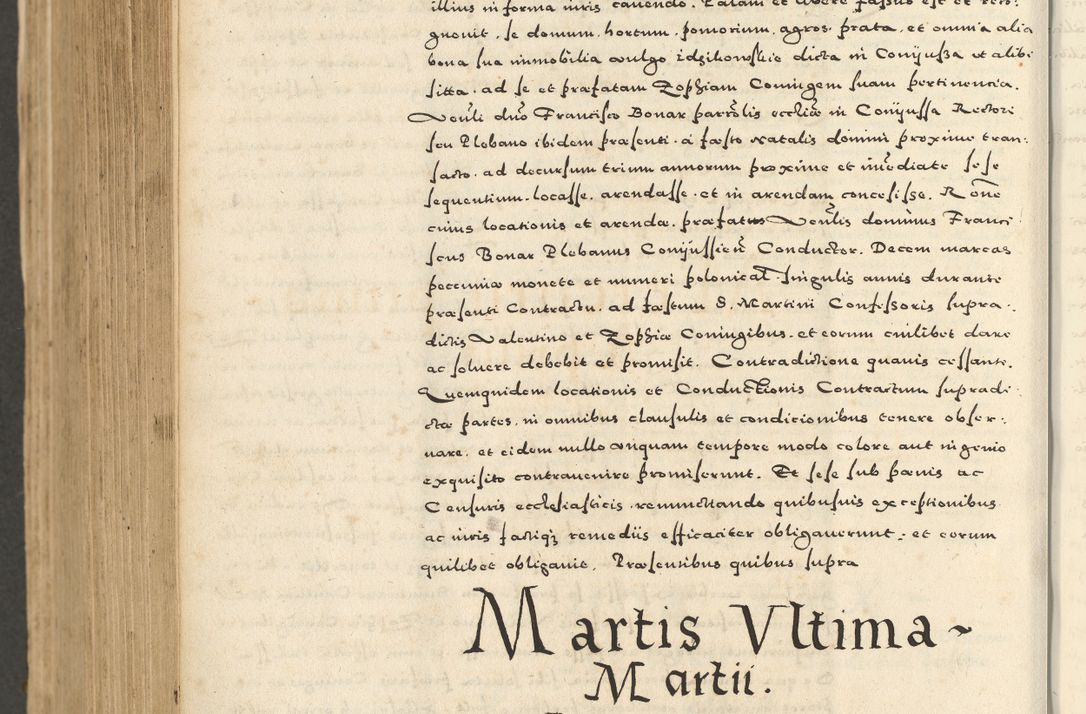 illius in forma iuris cauendo. Palam et libere fassus est et reco:
gnouit. se domum. hortum. pomorium. agros. prata. et omnia alia
bona sua immobilia vulgo idzikowskie dicta in Conijussa et alibi
sitta. ad se et præfatam Zophiam Coniugem suam pertinencia.
Veñli dño Francisco Bonar parrõlis eccliæ in Conijussa Rectori
seu Plebano ibidem præsenti. a fæsto natalis domini proxime tran:
sacto. ad decursum trium annorum proxime et im̃ediate sese
sequentium. locasse. arendasse. et in arendam concesisse. Rõne
cuius locationis et arendæ. præfatus Veñlis dominus Franci
scus Bonar Plebanus Conijussieñ Conductor. Decem marcas
peccuniæ monete et numeri polonicał. singulis annis durante
præsenti Contractu. ad fæstum S. Martini Confessoris supra.
dictis Valentino et Zophiæ Coniugibus. et eorum cuilibet dare
ac soluere debebit et promisit. Contradictione quauis cessante.
Quemquidem locationis et Conductionis Contractum supradi:
ctæ partes. in omnibus clausulis et condicionibus tenere obser:
uare. et eidem nullo vnquam tempore modo colore aut ingenio
exquisito contrauenire promiserunt. Et sese sub pænis ac
Censuris ecclesiasticis. renunctiando quibusuis exceptionibus
ac iuris factiq3 remediis efficaciter obligauerunt. et eorum
quilibet obligauit. Præsentibus quibus supra
Martis Vltima
Martii.